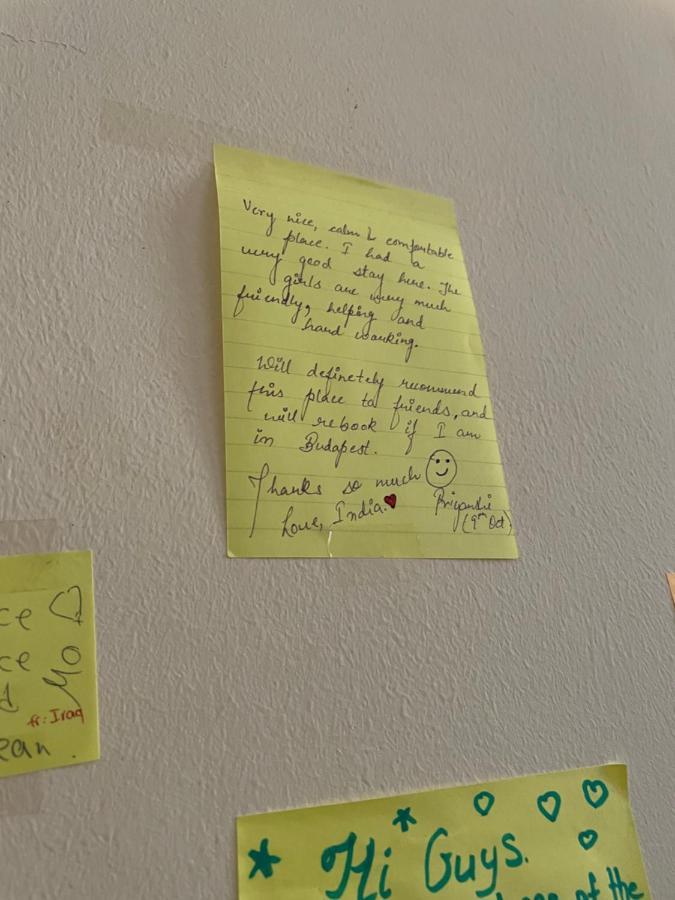 Very nice, calm & comfortable
place. I had a
very good stay here. The
girls are very much
friendly, helping and
hard working.
Will definetely recommend
this place to friends, and
will rebook if I am
in Budapest.
Thanks so much
Love, India.
(9th Oct)
ce
ce
fr: Iraq
ean.
Hi Guys.
of the